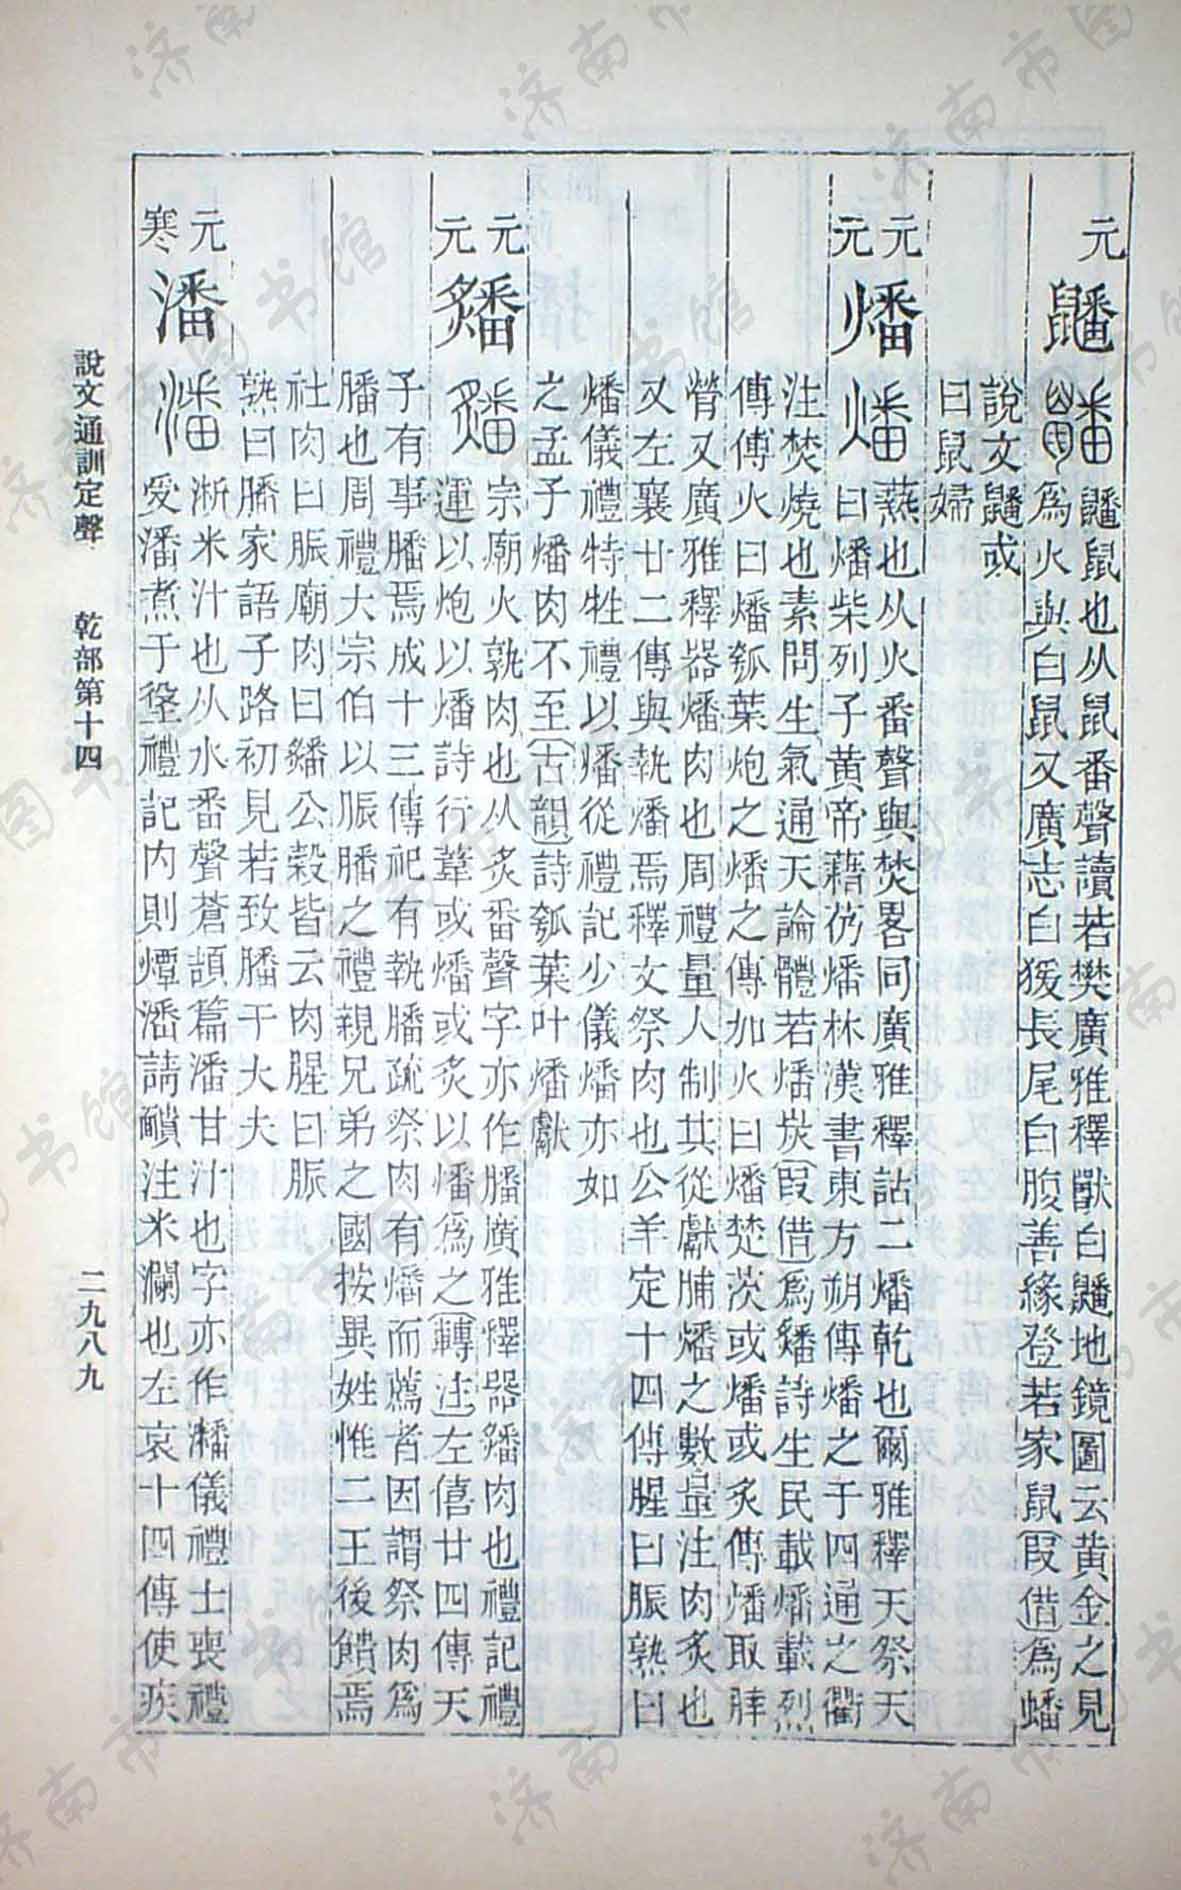 元
鼶
鼶鼠也从鼠番聲讀若樊廣雅釋獸白鼶地鏡圖云黄金之見
爲火與白鼠又廣志白猨長尾白腹善緣登若家鼠叚借爲蟠
說文鼶或
曰鼠婦
元
元
燔
爇也从火番聲與焚畧同廣雅釋詁二燔乾也爾雅釋天祭天
曰燔柴列子黄帝藉仍燔林漢書東方朔傳燔之于四通之衢
注焚燒也素問生氣通天論體若燔炭叚借爲鐇詩生民載燔載烈
傳傅火曰燔瓠葉炮之燔之傳加火曰燔楚茨或燔或炙傳燔取膟
膋又廣雅釋器燔肉也周禮量人制其從獻脯燔之數量注肉炙也
又左襄廿二傳與執燔焉釋文祭肉也公羊定十四傳腥曰脤熟曰
燔儀禮特牲禮以燔從禮記少儀燔亦如
之孟子燔肉不至古韻詩瓠葉叶燔獻
元
元
宗廟火孰肉也从炙番聲字亦作膰廣雅釋器肉也禮記禮
運以炮以燔詩行葦或燔或炙以燔爲之轉注左僖廿四傳天
子有事膰焉成十三傳祀有執膰疏祭肉有燔而薦者因謂祭肉爲
膰也周禮大宗伯以脤膰之禮親兄弟之國按異姓惟二王後饋焉
社肉曰脤廟肉曰公穀皆云肉腥曰脤
熟曰膰家語子路初見若致膰于大夫
元
寒
潘
淅米汁也从水番聲蒼頡篇潘甘汁也字亦作灊儀禮士喪禮
受潘煮于垼禮記内則燂潘請靧注米瀾也左哀十四傳使疾
說文通訓定聲　乾部第十四　二九八九
济南市图书馆